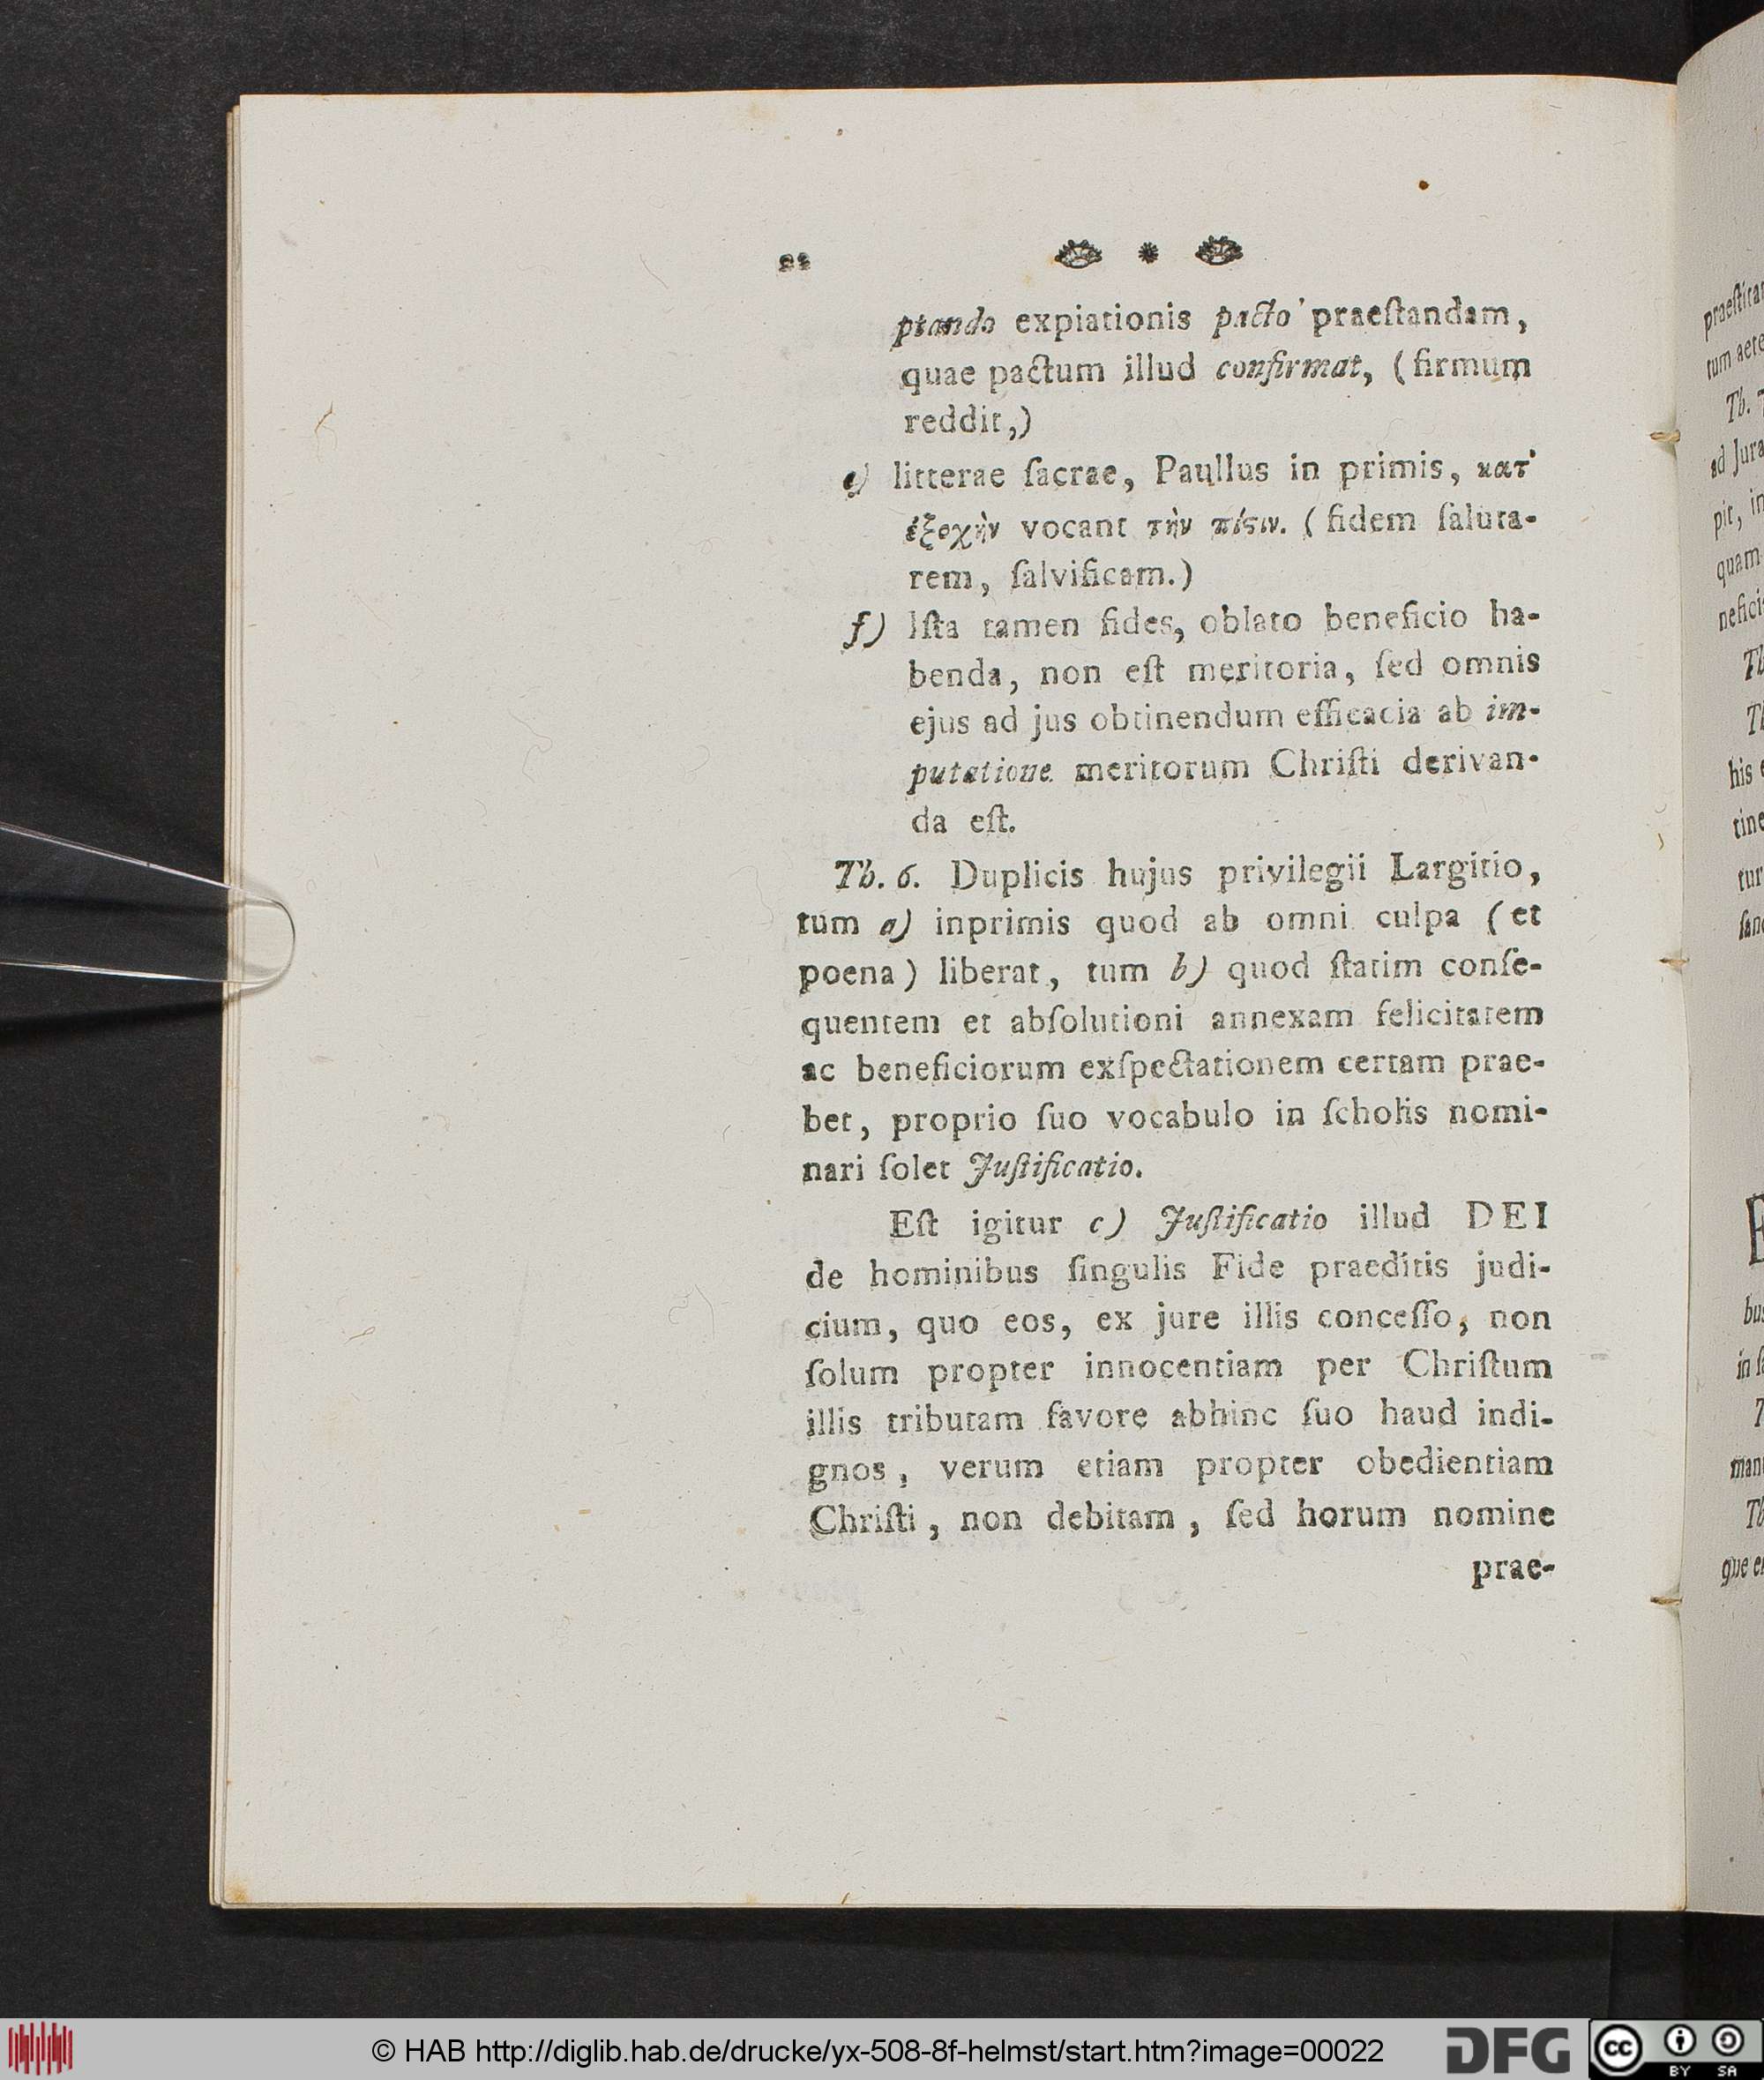 22
ptando expiationis pacto praeſtandam,
quae pactum illud confirmat, (firmum
reddit,)
e) litterae ſacrae, Paullus in primis, κατ'
ἐξοχὴν vocant τὴν πίϛιν. (fidem ſaluta-
rem, ſalvificam.)
f) Iſta tamen fides, oblato beneficio ha-
benda, non eſt meritoria, ſed omnis
ejus ad jus obtinendum efficacia ab im-
putatione meritorum Chriſti derivan-
da eſt.
Th. 6. Duplicis hujus privilegii Largitio,
tum a) inprimis quod ab omni culpa (et
poena) liberat, tum b) quod ſtatim conſe-
quentem et abſolutioni annexam felicitatem
ac beneficiorum exſpectationem certam prae-
bet, proprio ſuo vocabulo in ſcholis nomi-
nari ſolet Juſtificatio.
Eſt igitur c) Juſtificatio illud DEI
de hominibus ſingulis Fide praeditis judi-
cium, quo eos, ex jure illis conceſſo, non
ſolum propter innocentiam per Chriſtum
illis tributam favore abhinc ſuo haud indi-
gnos, verum etiam propter obedientiam
Chriſti, non debitam, ſed horum nomine
prae-
praeſtita
tum aete
Th. 7
ad Jura
pit, in
quam
nefici
Th
Th
his
tine
tur
ſan
bus
in ſ
man
Th
que e
© HAB http://diglib.hab.de/drucke/yx-508-8f-helmst/start.htm?image=00022
DFG
cc BY SA